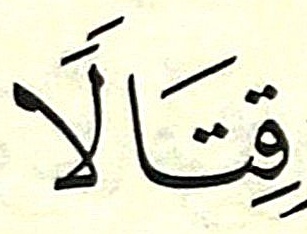 قِتَالًا